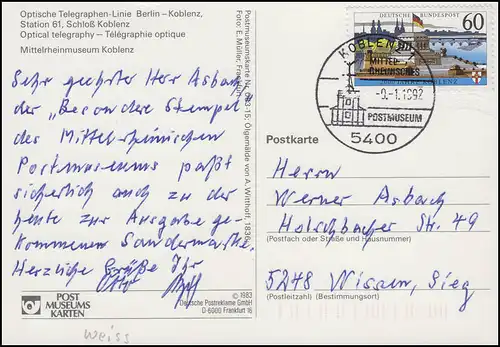 Optische Telegraphen-Linie Berlin – Koblenz,
Station 61, Schloß Koblenz
Optical telegraphy – Télégraphie optique
Mittelrheinmuseum Koblenz
Sehr geehrter Herr Asbach
der „Besondere Stempel
des Mittelrheinischen
Postmuseums paßt
sicherlich auch zu der
heute zur Ausgabe ge-
kommenen Sondermarke.
Herzliche Grüße Ihr
POST
MUSEUMS
KARTEN
© 1983
Deutsche Postreklame GmbH
D-6000 Frankfurt 16
weiss
DEUTSCHE BUNDESPOST
60
KOBLENZ
MITTEL-
RHEINISCHES
-9.-1.1992
POSTMUSEUM
5400
Postkarte
Herrn
Werner Asbach
Holschbacher Str. 49
(Postfach oder Straße und Hausnummer)
5248 Wissen, Sieg
(Postleitzahl) (Bestimmungsort)